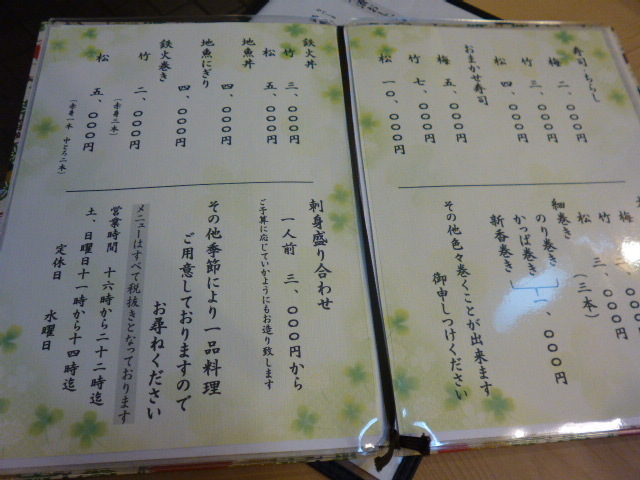 寿司・ちらし
梅 二、〇〇〇円
竹 三、〇〇〇円
松 四、〇〇〇円
おまかせ寿司
梅 五、〇〇〇円
竹 七、〇〇〇円
松 一〇、〇〇〇円
梅
竹 三、〇〇〇円
松 (三本)
細巻き
のり巻き
かっぱ巻き 一、〇〇〇円
新香巻き
その他色々巻くことが出来ます
御申しつけください
鉄火丼
竹 三、〇〇〇円
松 五、〇〇〇円
地魚丼
四、〇〇〇円
地魚にぎり
四、〇〇〇円
鉄火巻き
竹 二、〇〇〇円
(赤身三本)
松 五、〇〇〇円
(赤身一本 中とろ二本)
刺身盛り合わせ
一人前 三、〇〇〇円から
ご予算に応じていかようにもお造り致します
その他季節により一品料理
ご用意しておりますので
お尋ねください
メニューはすべて税抜きとなっております
営業時間 十六時から二十二時迄
土、日曜日十一時から十四時迄
定休日 水曜日